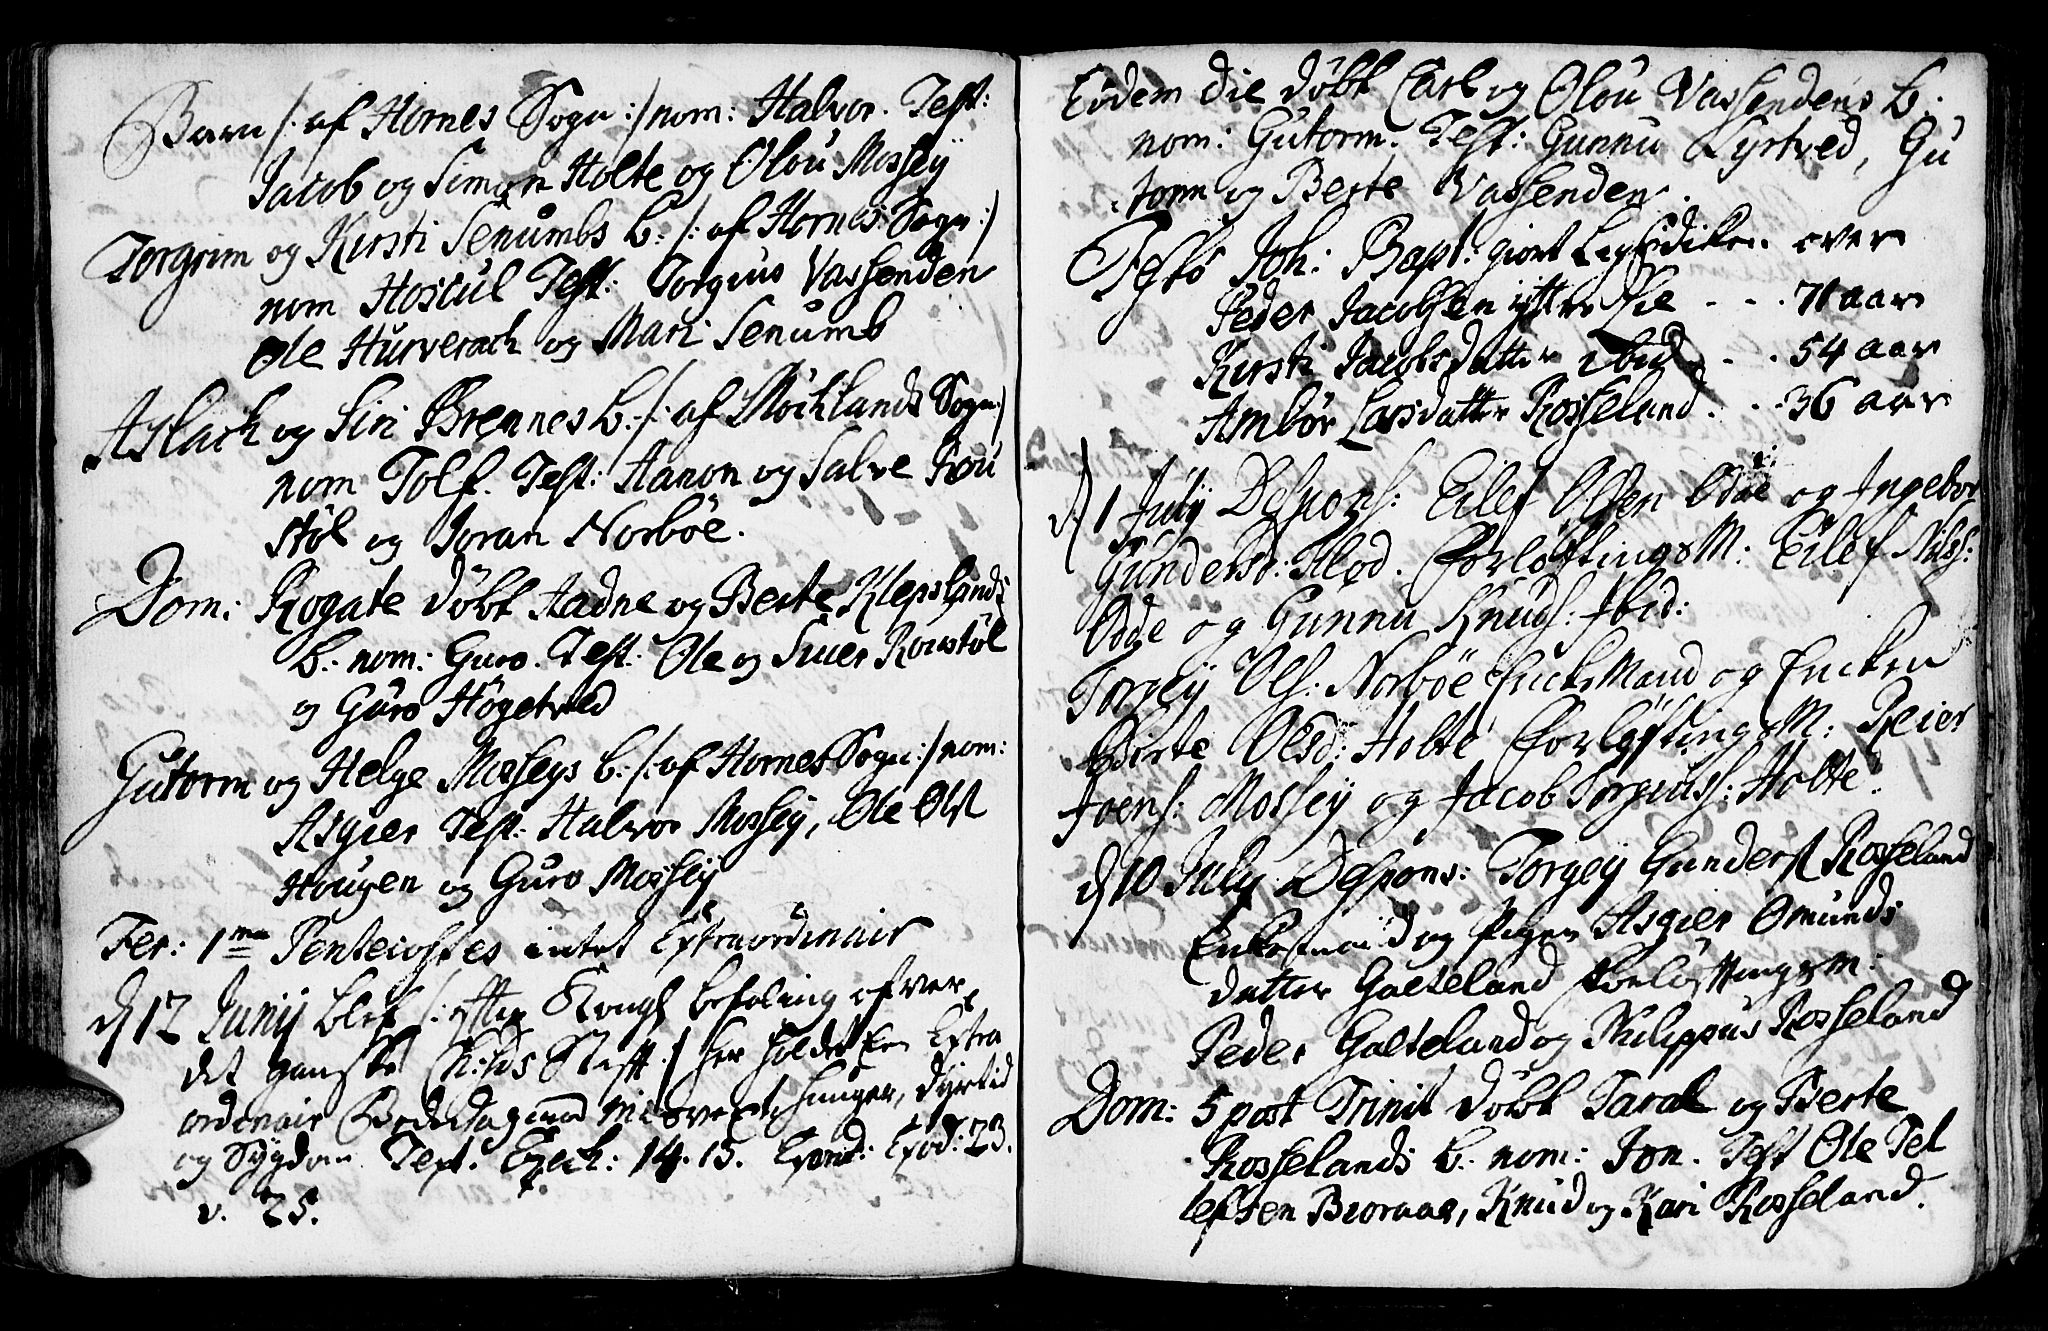 Barn /: af Hornes Sogn :/ nom: Halvor. Test:
Jacob og Simon Holte og Olou Mossey
Torgrim og Kirsti Senumbs b: /: af Hornes Sogn :/
nom Hoscul Test: Torgius Vassenden
Ole Hurverack og Mari Senumb
Aslach og Siri Brennes b: /: af Møchlands Sogn :/
nom Tolf. Test: Hanon og Salve Rou
støl og Joran Norbøe.
Dom: Rogate døbt Aadne og Berte Klepslands
b: nom: Guro. Test: Ole og Siver Roustøl
og Guro Høgetved
Gutorm og Helge Mosseys b: /: af Hornes Sogn :/ nom:
Asgier Test: Halvor Mossey, Ole Ols
Hougen og Guro Mossey
Fer: 1ma Pentecostes intet Extraordinair
d 12 Junij blef /: efter Kongl befaling ofver
det ganske Stift :/ her holdet En Extra
ordinair Bededag mod Misvext, hunger, dyrtid
og Sygdom. Text. Ezech: 14. 13. Exod: 23.
v. 25.
Eodem die døbt Carl og Olou Vassendens b:
nom: Gutorm. Test: Gunnu Lyrtved, Gu
torm og Berte Vassenden.
Festo Joh: Bapt: giort Ligprediken over
Peder Jacobsen ytter - - . 71 aar
Kirsti Jacobsdatter ibid - - . 54 aar
Ambør Larsdatter Rosseland . . . 36 aar
d 1 July Despons: Eilef Olsen Odde og Ingebor
Gundersd: Flod. Forløftings M: Eilef Nilss:
Odde og Gunnu Knuds: Ibid:
Torgey Ols: Norbøe EnckeMand og Encken
Birte Olsd: Holte Forløftings M: Reier
Joens: Mossey og Jacob Torgius: Holte.
d 10 July Despons: Torgey Gunders Rosseland
Enkemand og Pigen Asgier Omunds
datter Galteland Forløftings M:
Peder Galteland og Philippus Rosseland
Dom: 5 post Trinit døbt Taral og Berte
Rosselands b: nom: Jon. Test Ole Tel
lefsen Broraae, Knud og Kari Rosseland.